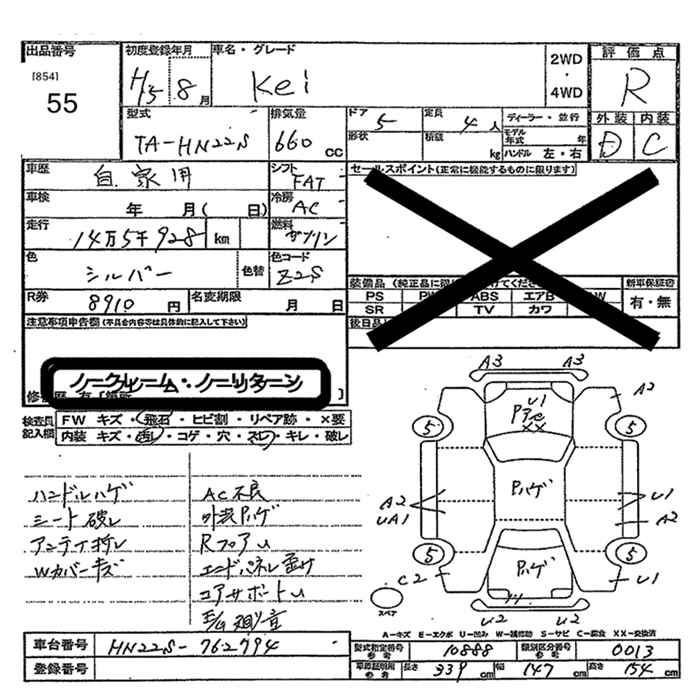 出品番号
[854]
55
初度登録年月
H15 8月
車名・グレード
Kei
2WD
・
4WD
評価点
R
型式
TA-HN22S
排気量
660 cc
ドア
5
定員
4人
形状
積載
kg
ディーラー・並行
モデル年式 年
ハンドル 左・右
外装
D
内装
C
車歴
自家用
シフト
FAT
車検
年 月( 日)
冷房
AC
走行
14万5千928 km
燃料
ガソリン
色
シルバー
色替
色コード
Z2S
R券
8910円
名変期限
月 日
セールスポイント(正常に機能するものに限ります)
装備品
PS
ABS
エアB
SR
TV
カワ
新車保証書
有・無
後日品
注意事項申告欄(不具合内容等は具体的に記入して下さい)
ノークレーム・ノーリターン
検査員記入欄
FW キズ・飛石・ヒビ割・リペア跡・×要
内装 キズ・汚れ・コゲ・穴・スレ・キレ・破レ
ハンドルハゲ
シート破レ
アンテナ折レ
Wカバーキズ
AC不良
外装Pハゲ
RフロアU
エンドパネル曲り
コアサポートU
A3 A3
A2
U1
XX
5 5
Pハゲ
A2
UA1
U1
A2
5 5
Pハゲ
C2
U1
U2 U2
スペア
A-キズ E-エクボ U-凹み W-補修跡 S-サビ C-腐食 XX-交換済
車台番号
HN22S-762794
登録番号
型式指定番号参考
10888
類別区分番号参考
0013
車両証明用参考
長さ 339 cm
幅 147 cm
高さ 154 cm